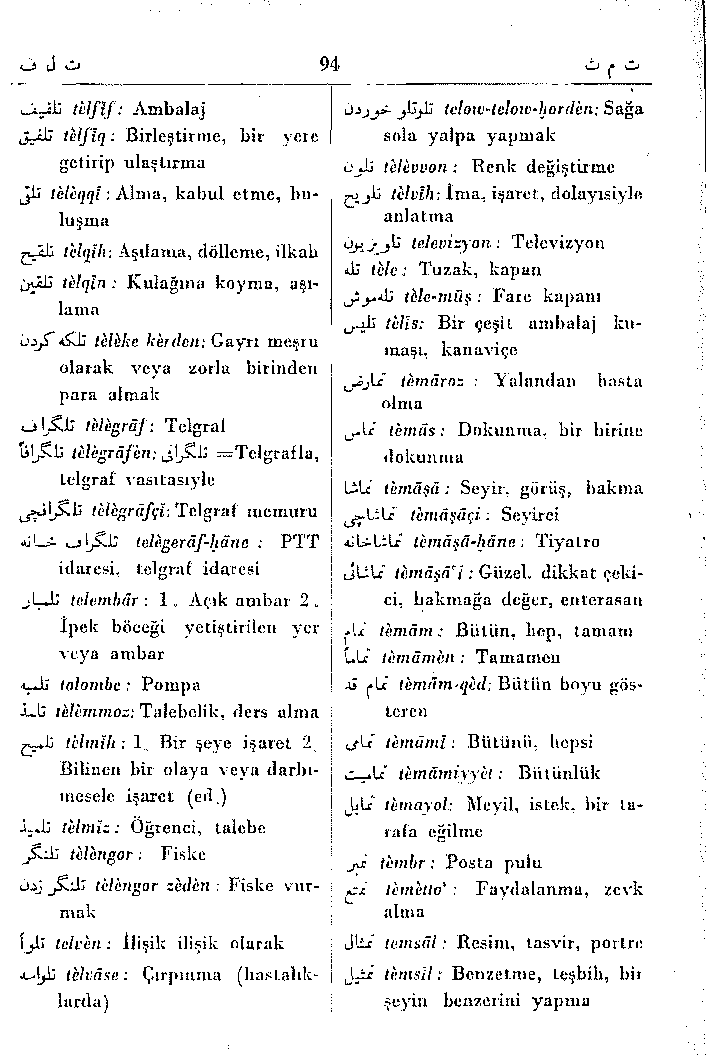 ت ل ف 94 ت م ث
تلفیف tèlfîf: Ambalaj
تلفیق tèlfîq: Birleştirme, bir yere
getirip ulaştırma
تلقّی tèlèqqî: Alma, kabul etme, bu-
luşma
تلقیح tèlqîh: Aşılama, dölleme, ilkah
تلقین tèlqîn: Kulağına koyma, aşı-
lama
تلکه کردن tèlèke kèrden: Gayrı meşru
olarak veya zorla birinden
para almak
تلگراف tèlègrāf: Telgraf
تلگرافاً tèlègrāfèn: تلگرافی =Telgrafla,
telgraf vasıtasıyle
تلگرافچی tèlègrāfçi: Telgraf memuru
تلگراف خانه telègerāf-ḫāne: PTT
idaresi, telgraf idaresi
تلمبار telembār: 1. Açık ambar 2.
İpek böceği yetiştirilen yer
veya ambar
تلمبه tolombe: Pompa
تلمذ tèlèmmoz: Talebelik, ders alma
تلمیح tèlmîh: 1. Bir şeye işaret 2.
Bilinen bir olaya veya darbı-
mesele işaret (ed.)
تلمیذ tèlmîz: Öğrenci, talebe
تلنگر tèlèngor: Fiske
تلنگر زدن tèlèngor zèdèn: Fiske vur-
mak
تلواً telvèn: İlişik ilişik olarak
تلواسه tèlvāse: Çırpınma (hastalık-
larda)
تلوتلو خوردن telow-telow-ḫordèn: Sağa
sola yalpa yapmak
تلون tèlèvvon: Renk değiştirme
تلویح tèlvîh: İma, işaret, dolayısiyle
anlatma
تلویزیون televizyon: Televizyon
تله tèle: Tuzak, kapan
تله‌موش tèle-mūş: Fare kapanı
تلیس tèlîs: Bir çeşit ambalaj ku-
maşı, kanaviçe
تمارض tèmāroz: Yalandan hasta
olma
تماس tèmās: Dokunma, bir birine
dokunma
تماشا tèmāşā: Seyir, görüş, bakma
تماشاچی tèmāşāçi: Seyirci
تماشاخانه tèmāşā-ḫāne: Tiyatro
تماشائی tèmāşā'i: Güzel, dikkat çeki-
ci, bakmağa değer, enterasan
تمام tèmām: Bütün, hep, tamam
تماماً tèmāmèn: Tamamen
تمام قد tèmām-qèd: Bütün boyu gös-
teren
تمامی tèmāmî: Bütünü, hepsi
تمامیت tèmāmiyyèt: Bütünlük
تمایل tèmayol: Meyil, istek, bir ta-
rafa eğilme
تمبر tèmbr: Posta pulu
تمتع tèmètto': Faydalanma, zevk
alma
تمثال temsāl: Resim, tasvir, portre
تمثیل tèmsîl: Benzetme, teşbih, bir
şeyin benzerini yapma